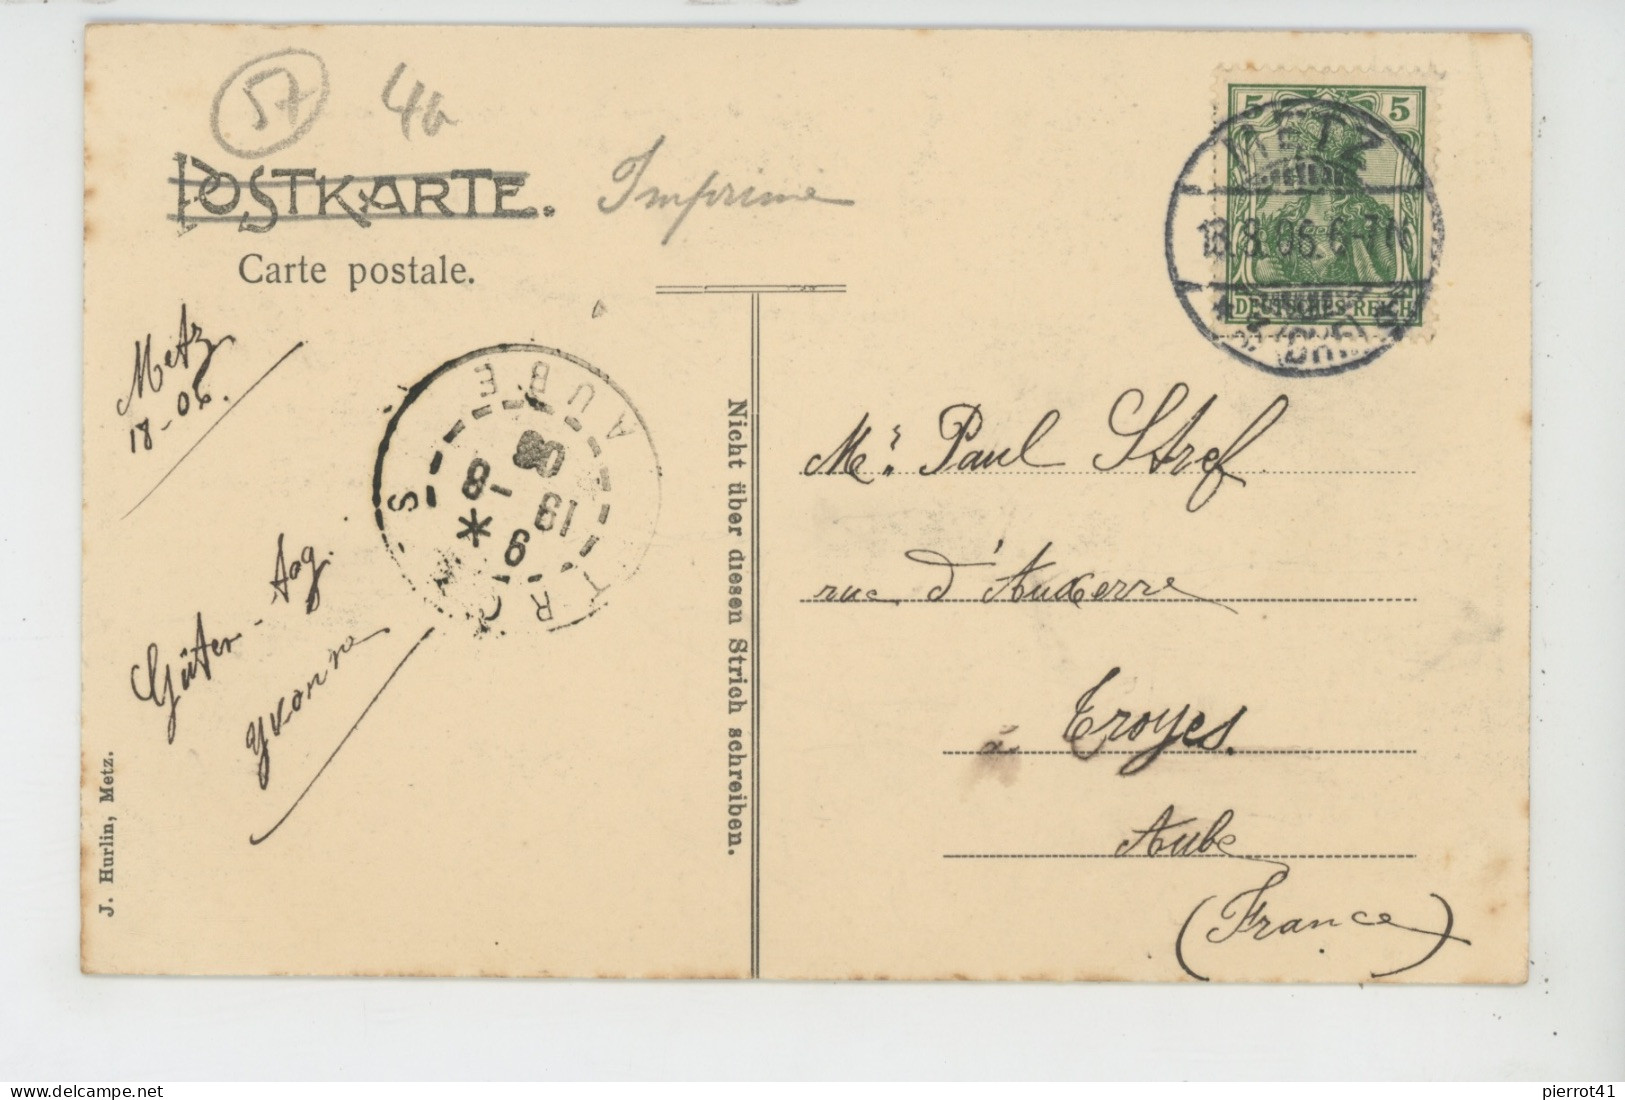 57
POSTKARTE.
Carte postale.
Imprimé
5 5
METZ
18.8.06.6-7N
DEUTSCHES REICH
Metz
18-06.
Güter-Tag.
Yvonne
TROYES
AUBE
9 *
19 -8
06
Nicht über diesen Strich schreiben.
J. Hurlin, Metz.
Mr. Paul Stref
rue d'Auxerre
à Troyes.
Aube
(France)
pierrot41